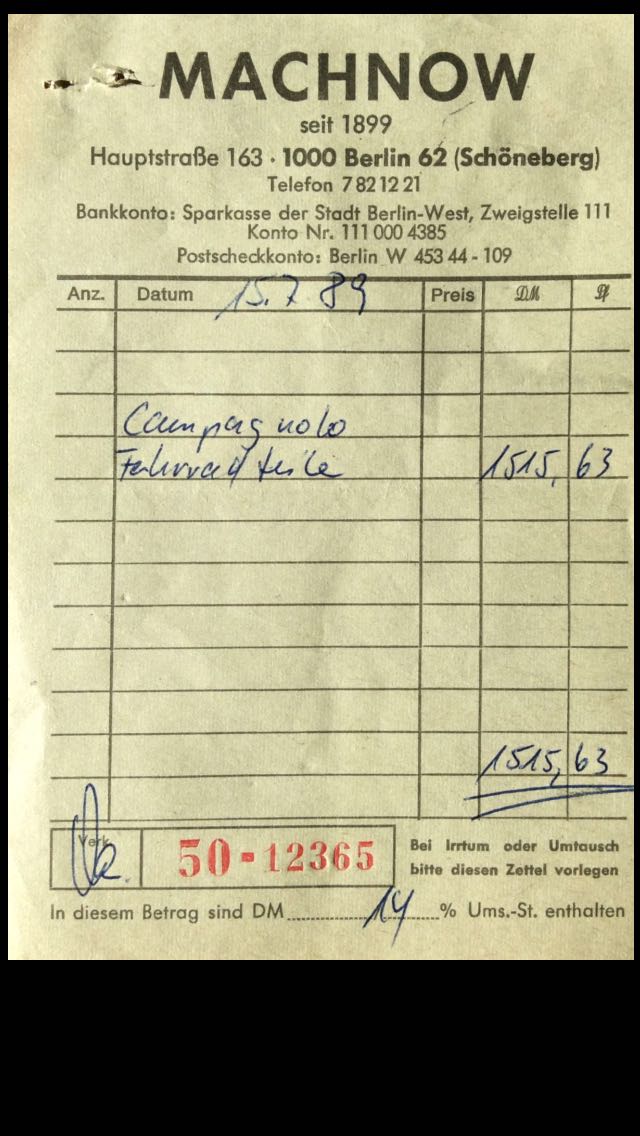 MACHNOW
seit 1899
Hauptstraße 163 · 1000 Berlin 62 (Schöneberg)
Telefon 7 82 12 21
Bankkonto: Sparkasse der Stadt Berlin-West, Zweigstelle 111
Konto Nr. 111 000 4385
Postscheckkonto: Berlin W 453 44 - 109
Anz. Datum 15.7 89 Preis DM Pf
Campagnolo
Fahrradteile 1515, 63
1515, 63
Verk.
50-12365
Bei Irrtum oder Umtausch
bitte diesen Zettel vorlegen
In diesem Betrag sind DM 14 % Ums.-St. enthalten